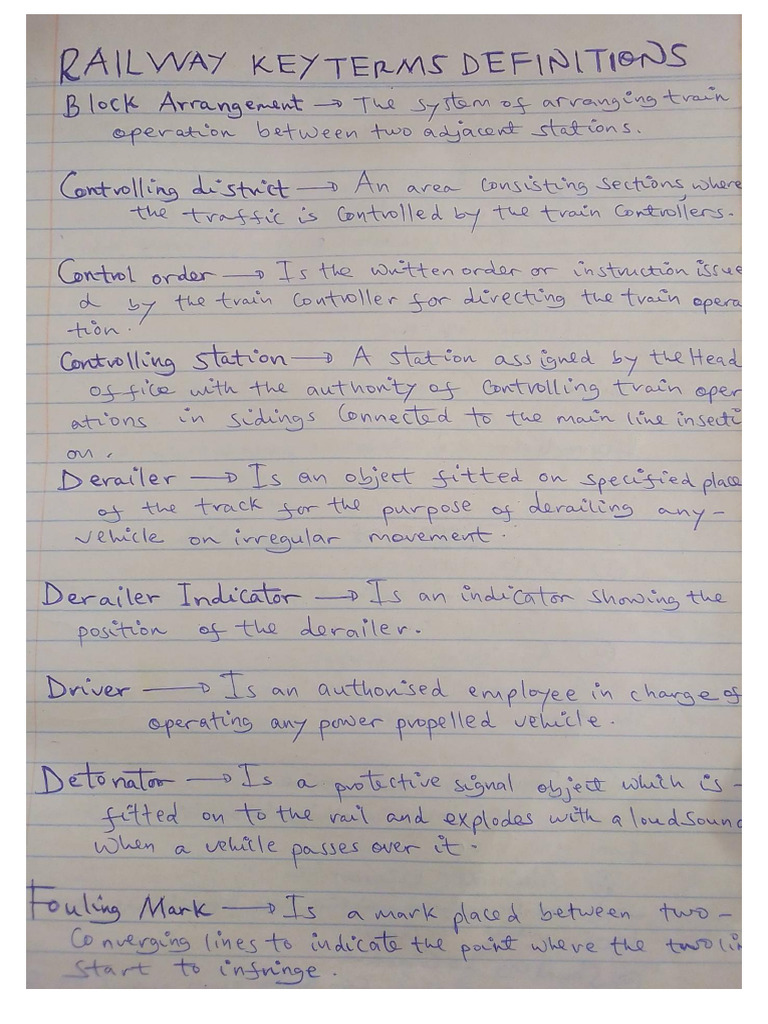 RAILWAY KEY TERMS DEFINITIONS
Block Arrangement → The system of arranging train
operation between two adjacent stations.
Controlling district → An area consisting sections, where
the traffic is controlled by the train controllers.
Control order → Is the written order or instruction issue
d by the train controller for directing the train opera
tion.
Controlling station → A station assigned by the Head
office with the authority of controlling train oper
ations in sidings connected to the main line insecti
on.
Derailer → Is an object fitted on specified place
of the track for the purpose of derailing any-
vehicle on irregular movement.
Derailer Indicator → Is an indicator showing the
position of the derailer.
Driver → Is an authorised employee in charge of
operating any power propelled vehicle.
Detonator → Is a protective signal object which is -
fitted on to the rail and explodes with a loud sound
when a vehicle passes over it.
Fouling Mark → Is a mark placed between two -
Converging lines to indicate the point where the two lin
start to infringe.